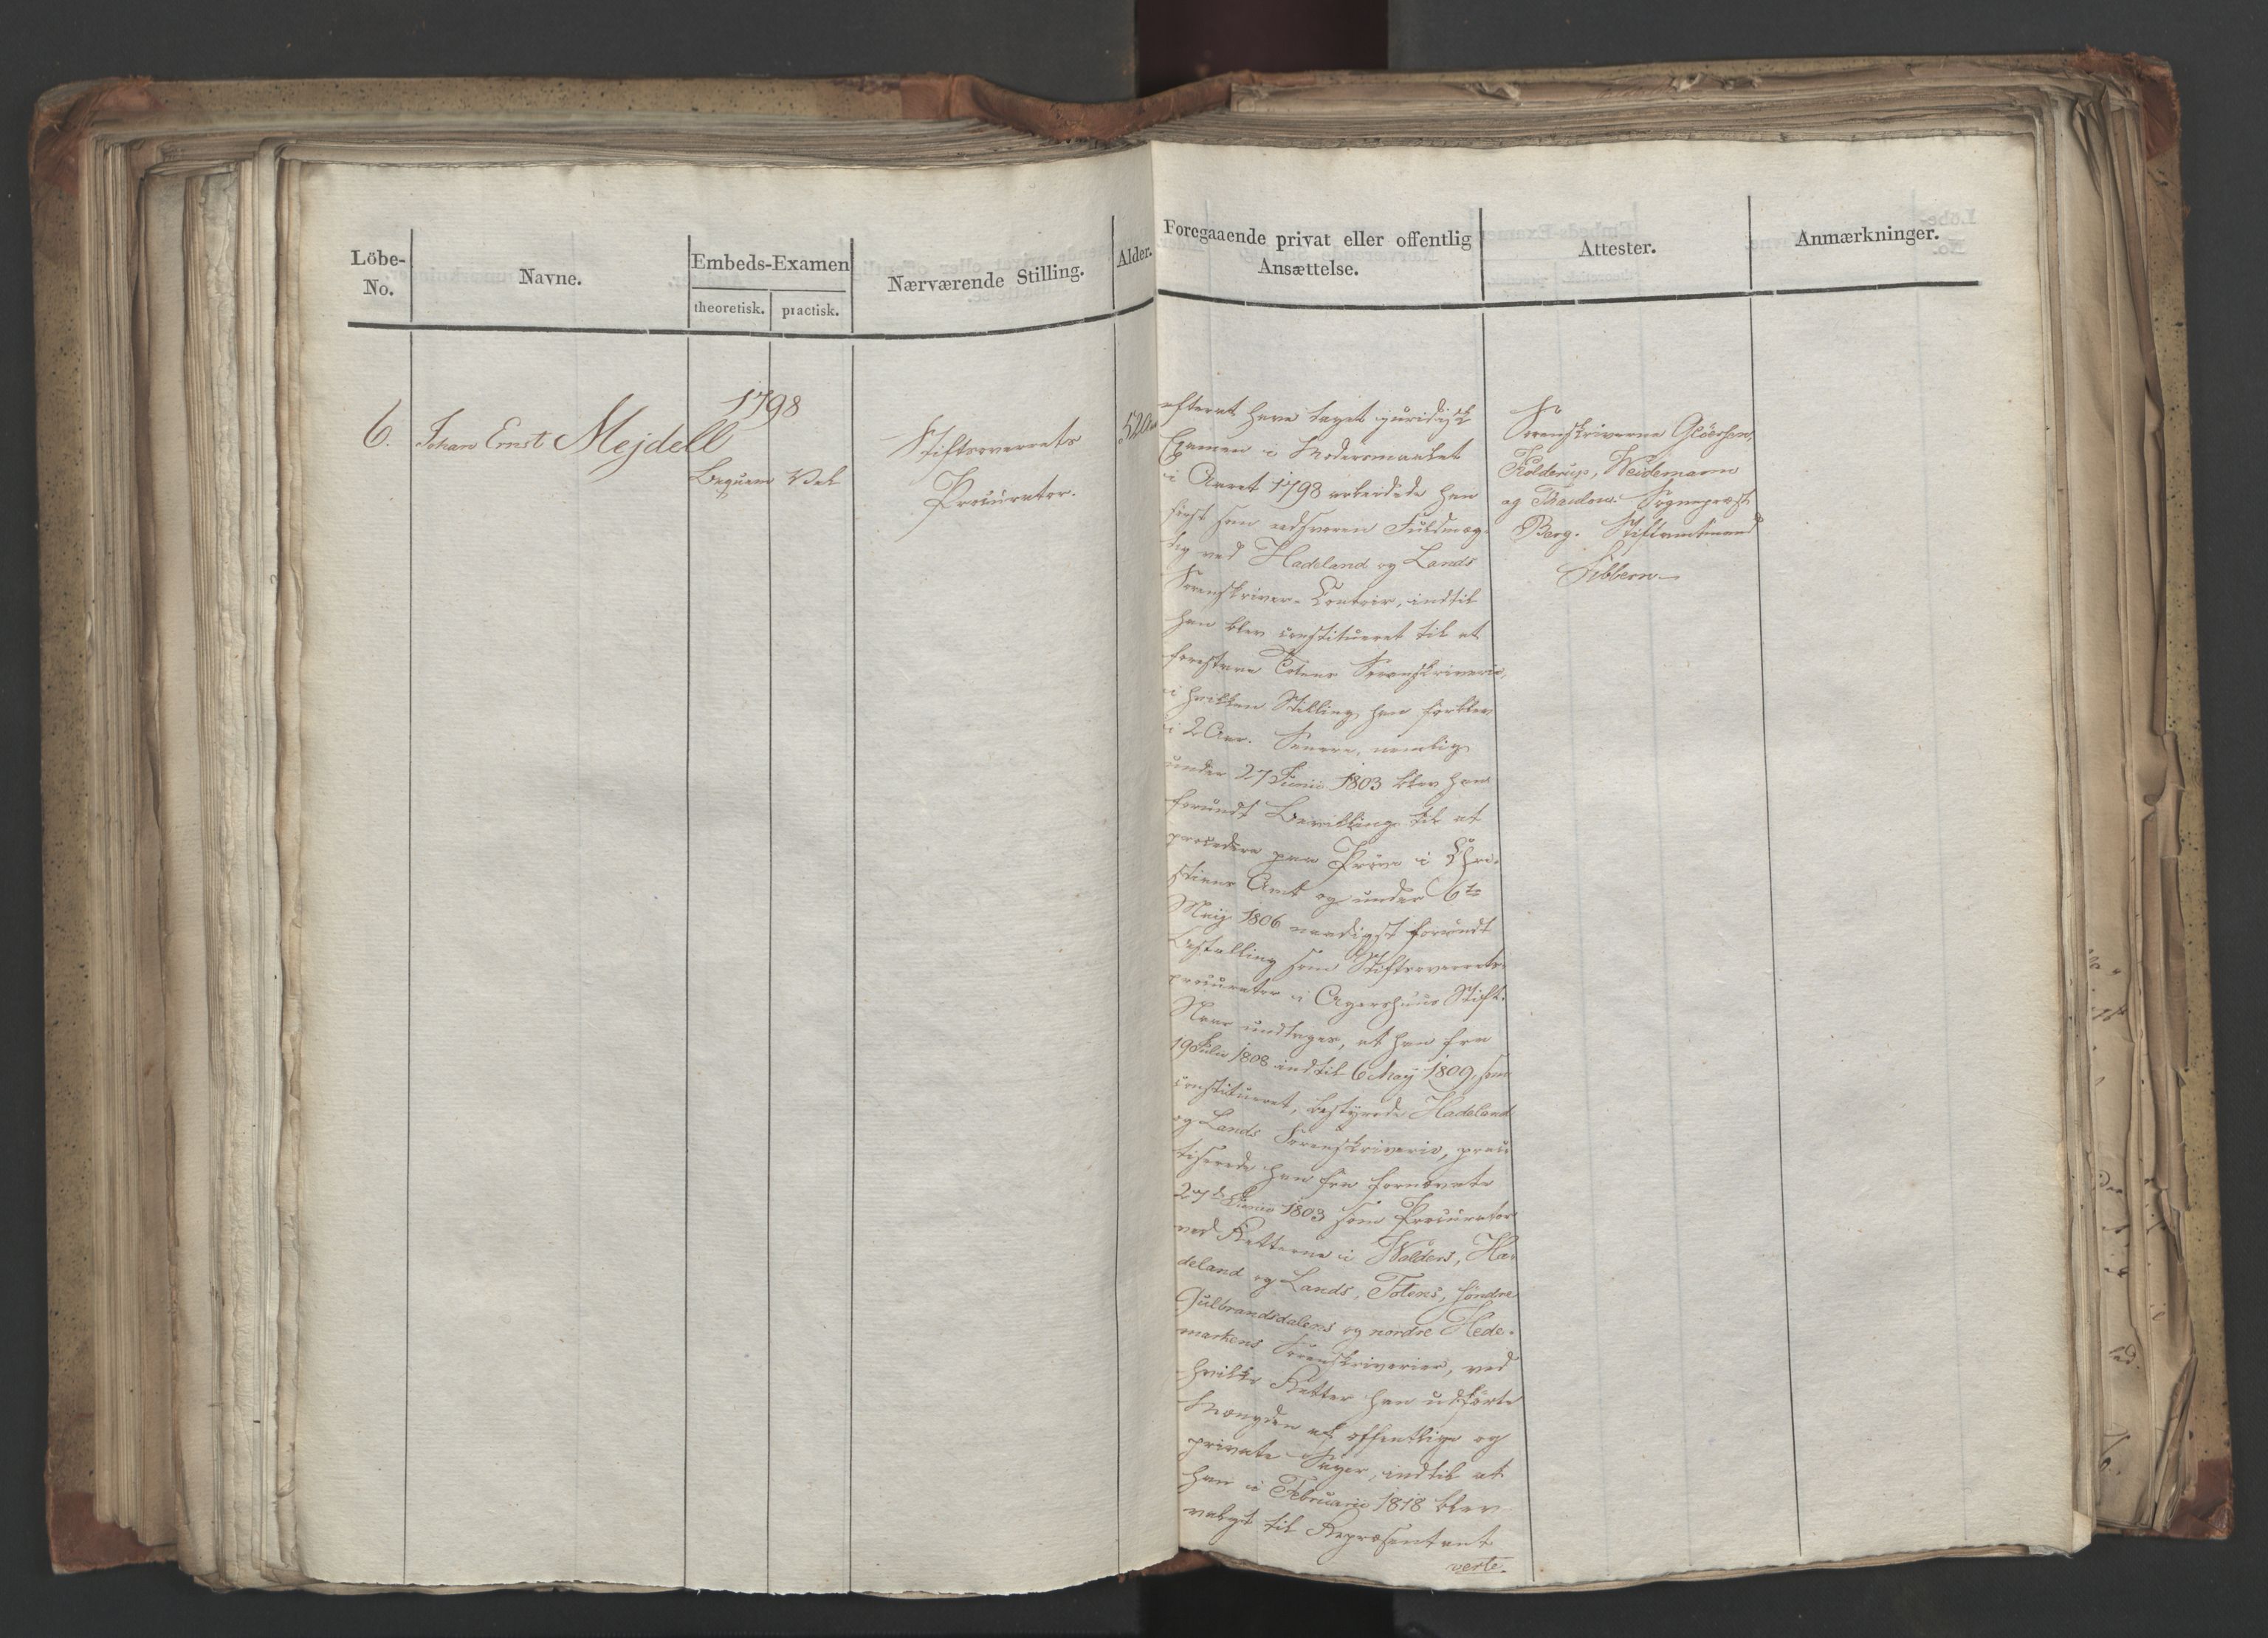 Löbe-
No.
Navne.
Embeds-Examen
theoretisk.
practisk.
Nærværende Stilling.
Alder.
Foregaaende privat eller offentlig
Ansættelse.
Attester.
Anmærkninger.
6.
Johan Ernst Mejdell
1798
Beqvem Vel
Stiftsoverrets
Procurator.
efterat have taget juridisk
Examen i Modersmaalet
i Aaret 1798 arbeidede han
først som edsvoren Fuldmæg-
tig ved Hadeland og Lands
Sorenskriver-Contoir, indtil
han blev constitueret til at
forestaae Totens Sorenskriverie,
i hvilken Stilling han forblev
i 2 Aar. Senere, nemlig
under 27 Junii 1803 blev han
forundt Bevilling til at
procedere paa Prøve i Chri-
stians Amt og under 6te
Maij 1806 naadigst forundt
Bestalling som Stiftsoverrets-
procurator i Agershuus Stift.
Naar undtages, at han fra
19 Julii 1808 indtil 6 Maij 1809, som
constitueret, bestyrede Hadeland
og Lands Sorenskriverie, prac-
tiserede han fra fornævnte
27de Junii 1803 som Procurator
ved Retterne i Walders, Ha-
deland og Lands, Totens, söndre
Gulbrandsdalens og nordre Hede-
markens Sorenskriverier, ved
hvilke Retter han udførte
Mængden af offentlige og
private Sager, indtil at
han i Februarii 1818 blev
valgt til Repræsentant
verte.
Sorenskriverne Glöersen,
Kolderup, Weidemann
og Sognepræst
Berg. Stiftamtmand
Sibbern